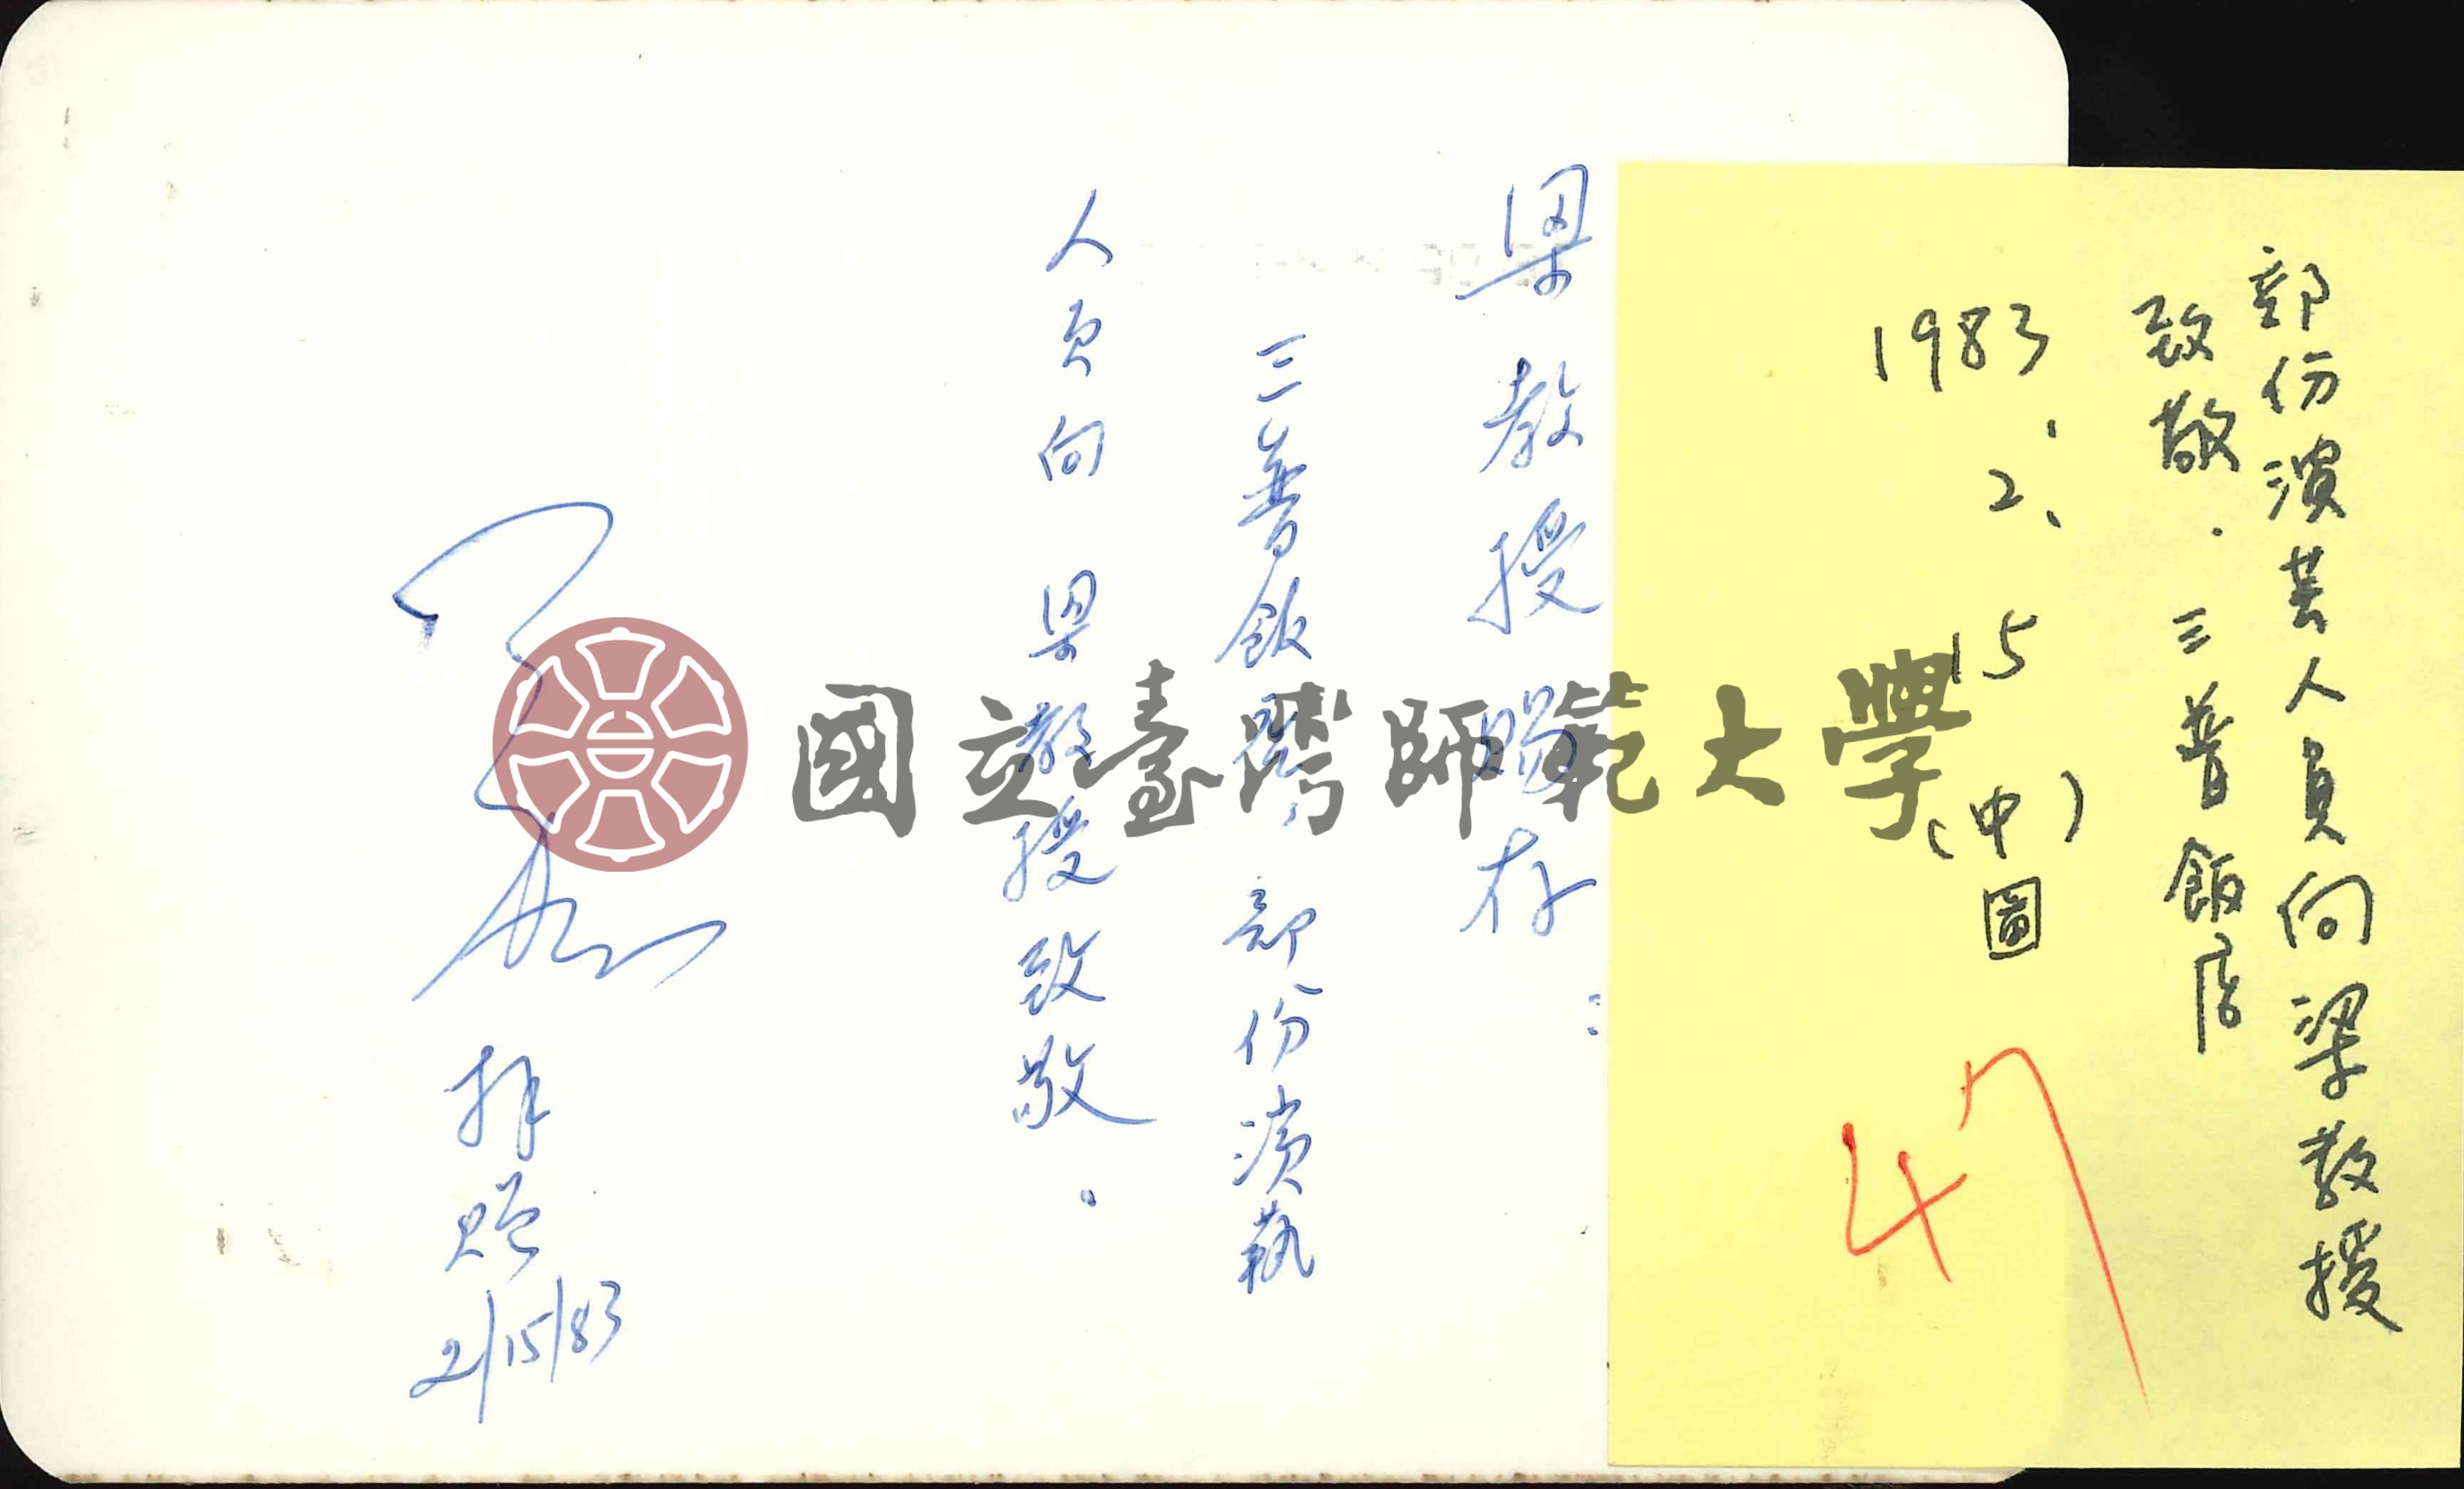 部份演芸人員向梁教授
致敬．三普飯店
1983、2、15
(中)圖
47
梁教授賜存：
三普飯店，部份演藝
人員向 梁教授致敬。
拜贈
2/15/83
國立臺灣師範大學